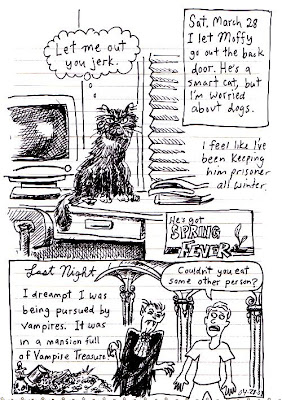 Let me out
you jerk.
Sat. March 28
I let Moffy
go out the back
door. He's a
smart cat, but
I'm worried
about dogs.
I feel like I've
been keeping
him prisoner
all winter.
He's got
SPRING
FEVER
Last Night
I dreampt I was
being pursued by
vampires. It was
in a mansion full
of Vampire Treasure.
Couldn't you eat
some other person?